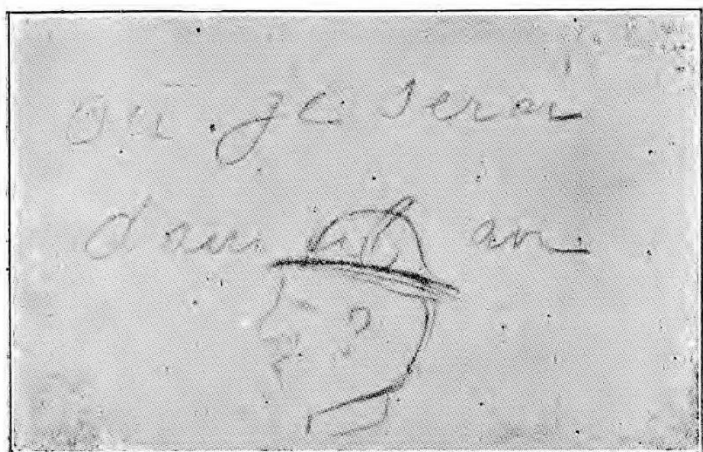 où je serai
dans ans
?